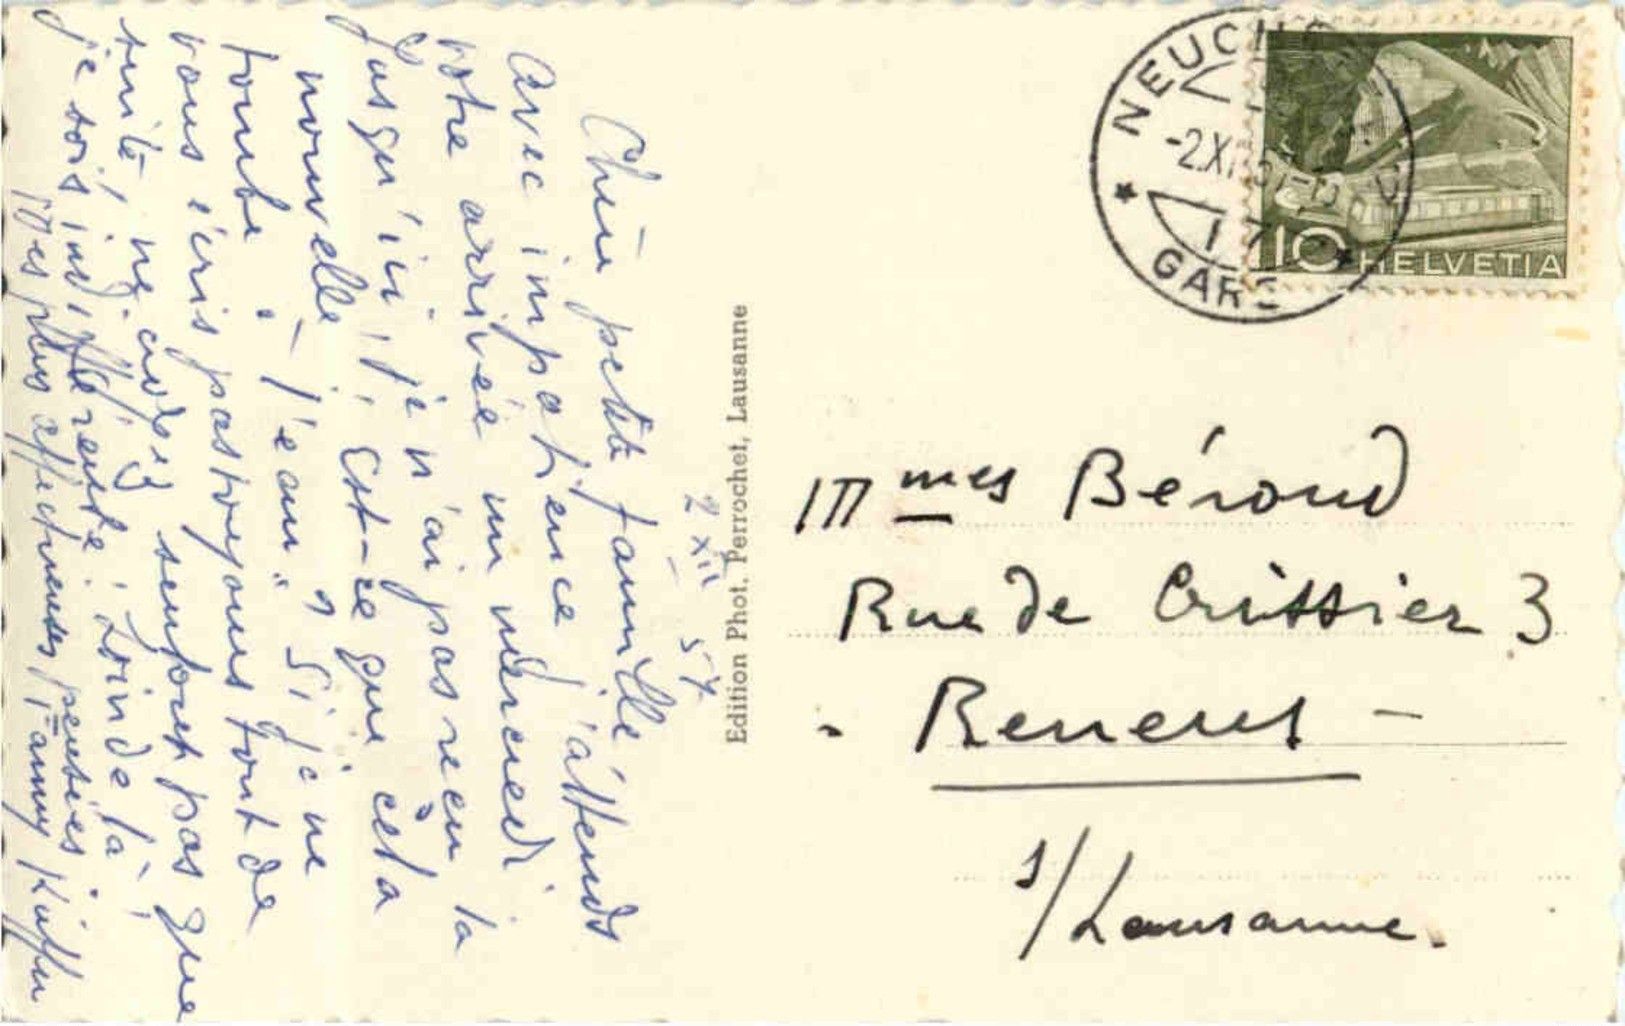 2 XII 57
Chère petite famille j'attends
avec impatience
votre arrivée un mercredi
Jusqu'ici, je n'ai pas reçu la
nouvelle. Est-ce que cela
tombe à "l'eau"? Si je ne
vous écris pas toujours tout de
suite, ne croyez surtout pas que
je sois indifférente, Loin de là!
mes plus affectueuses pensées
Edition Phot. Perrochet, Lausanne
NEUCH
-2.XII.57-
17
GARE
10 HELVETIA
Mmes Béroud
Rue de Crissier 3
- Renens -
s/Lausanne.